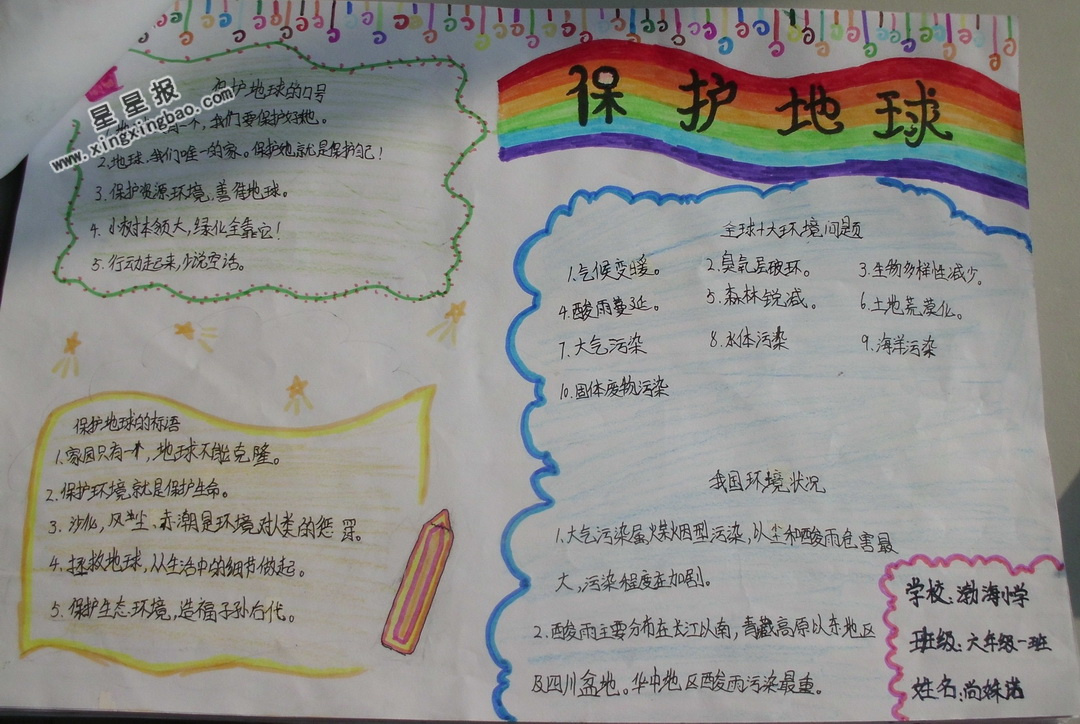 保护地球
星星报
www.xingxingbao.com
保护地球的口号
我们要保护好她。
2.地球,我们唯一的家。保护她就是保护自己!
3.保护资源环境,善待地球。
4.小树本领大,绿化全靠它!
5.行动起来,少说空话。
保护地球的标语
1.家园只有一个,地球不能克隆。
2.保护环境就是保护生命。
3.沙化,风尘、赤潮是环境对人类的惩罚。
4.拯救地球,从生活中的细节做起。
5.保护生态环境,造福子孙后代。
全球十大环境问题
1.气候变暖。 2.臭氧层破坏。 3.生物多样性减少。
4.酸雨蔓延。 5.森林锐减。 6.土地荒漠化。
7.大气污染 8.水体污染 9.海洋污染
10.固体废物污染
我国环境状况
1.大气污染属煤烟型污染,以尘和酸雨危害最
大,污染程度在加剧。
2.酸雨主要分布在长江以南,青藏高原以东地区
及四川盆地。华中地区酸雨污染最重。
学校:渤海小学
班级:六年级一班
姓名:尚姝诺